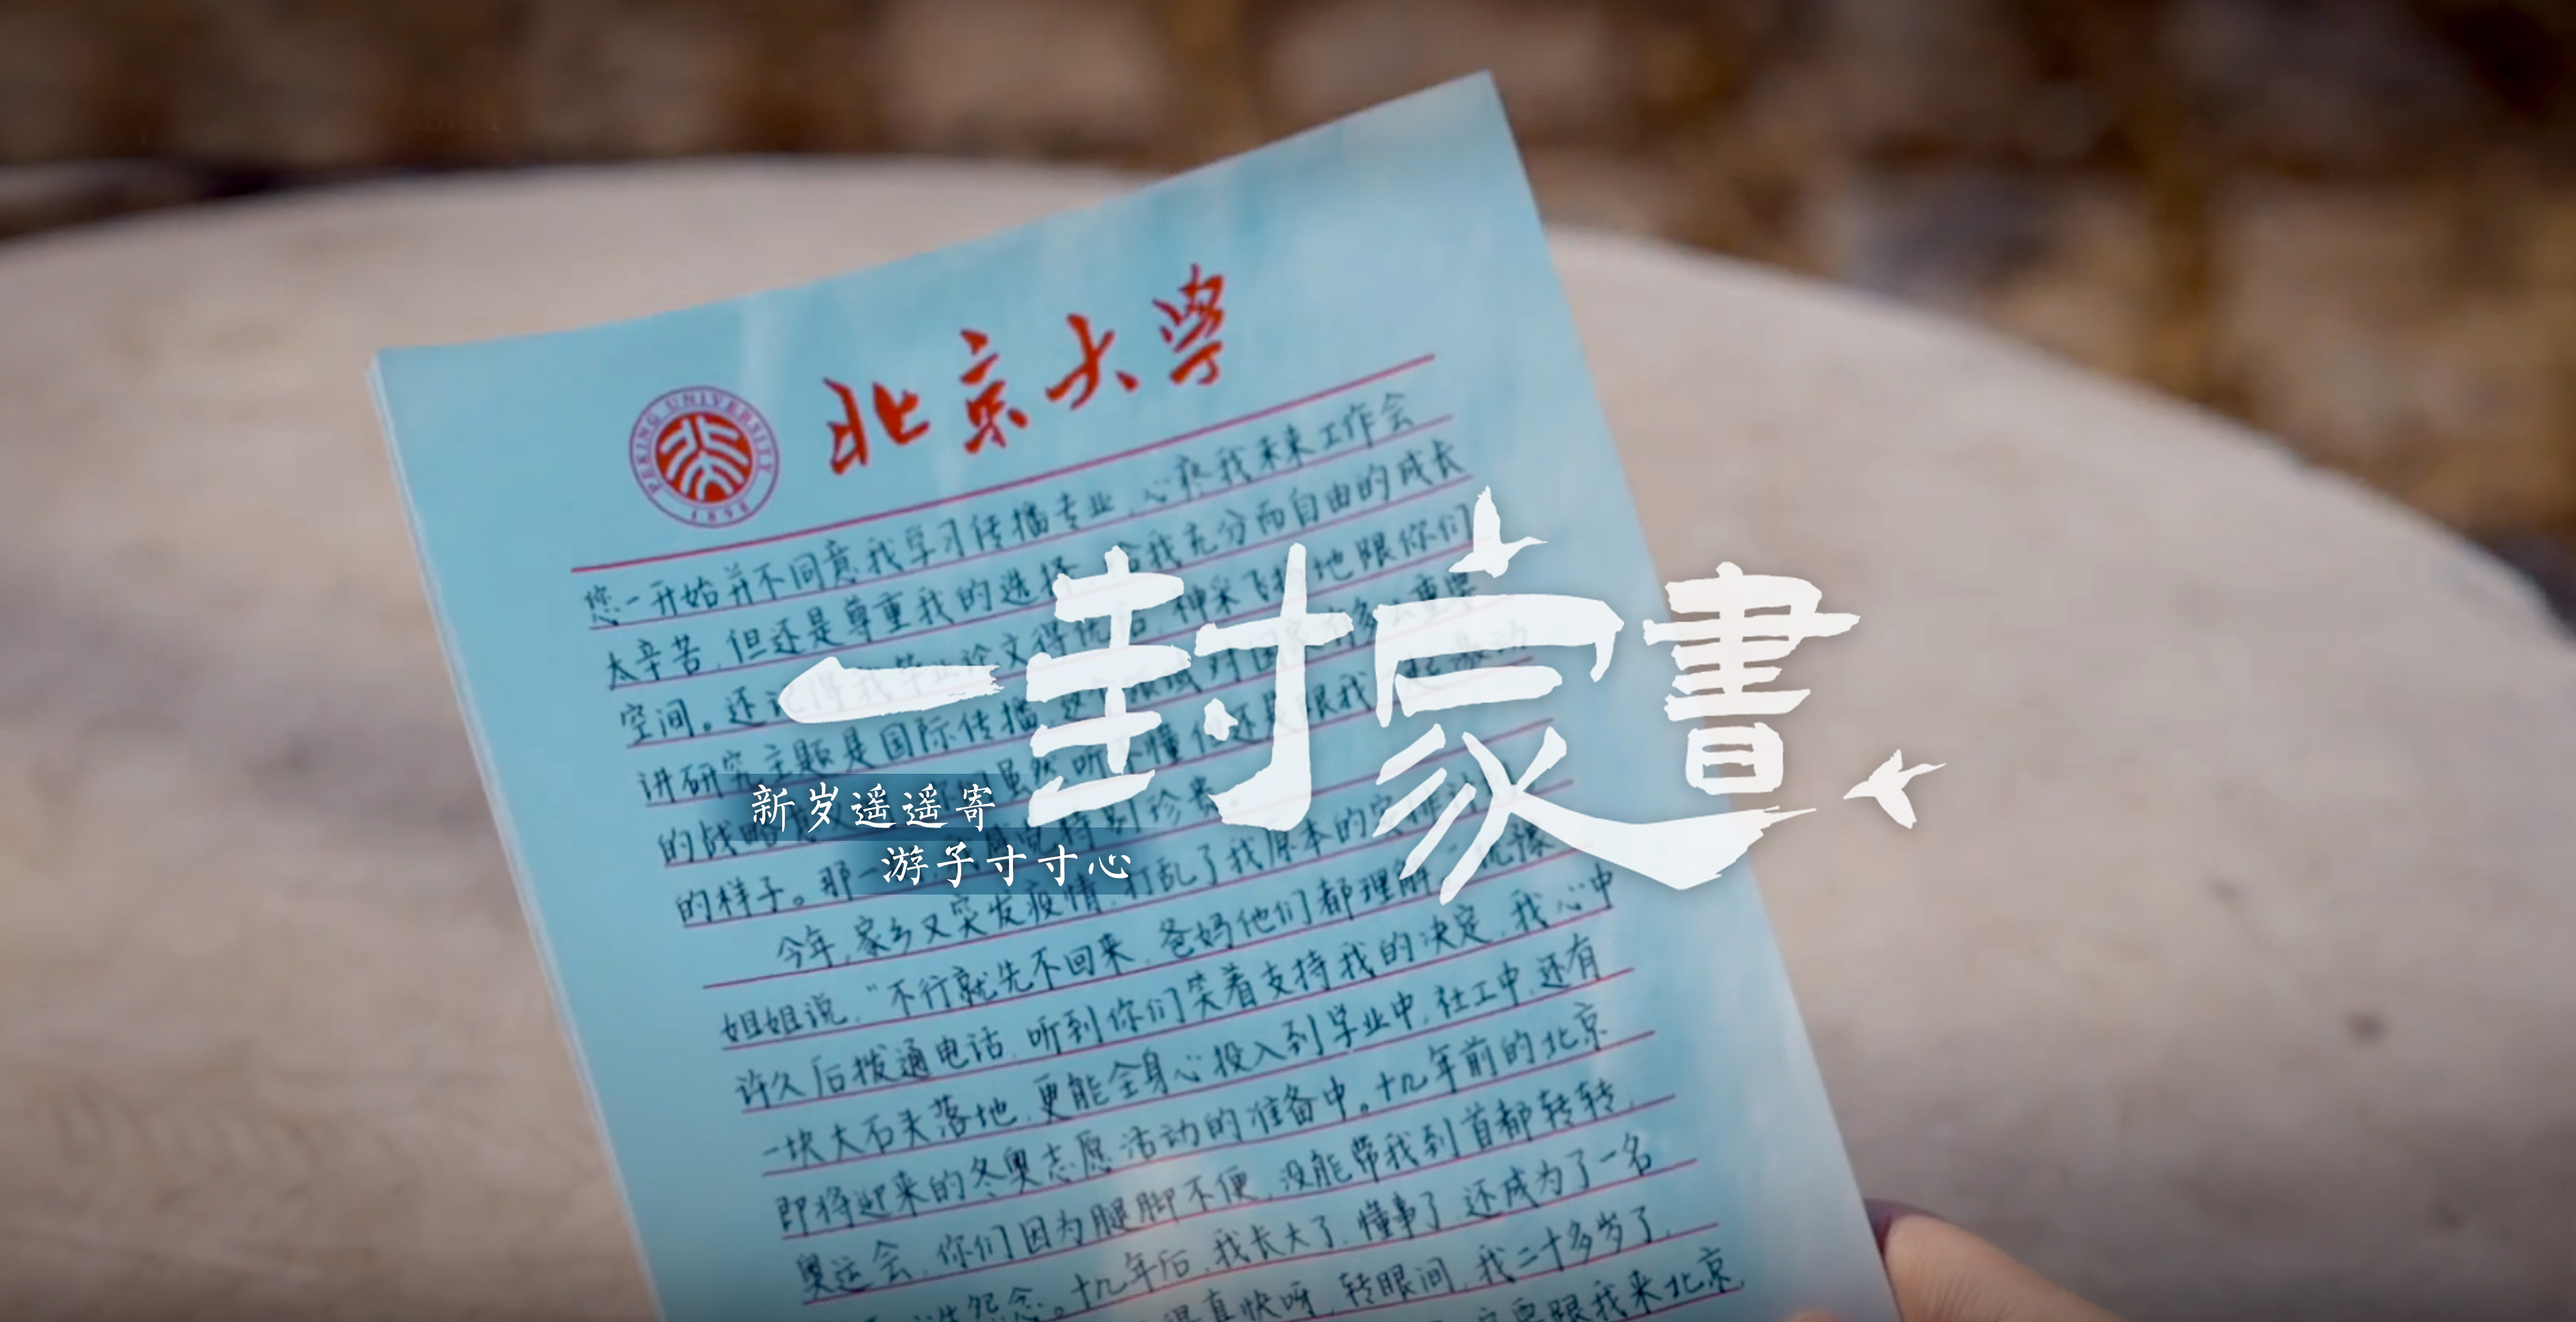 北京大学
PEKING UNIVERSITY
1898
您一开始并不同意我学习传播专业,心疼我未来工作会
太辛苦,但还是尊重我的选择,给我充分而自由的成长
空间。还记得我毕业论文得优后,神采飞扬地跟你们
讲研究主题是国际传播,这个领域对国家有多么重要
的战略 虽然听不懂但还是跟我一起激动
的样子。那一 特别珍贵。
今年,家乡又突发疫情,打乱了我原本的
姐姐说,“不行就先不回来,爸妈他们都理解。”犹豫
许久后拨通电话,听到你们笑着支持我的决定,我心中
一块大石头落地,更能全身心投入到学业中,社工中,还有
即将迎来的冬奥志愿活动的准备中。十几年前的北京
奥运会,你们因为腿脚不便,没能带我到首都转转,
怨念。十几年后,我长大了,懂事了,还成为了一名
得真快呀,转眼间,我二十多岁了,
跟我来北京
一封家書
新岁遥遥寄
游子寸寸心